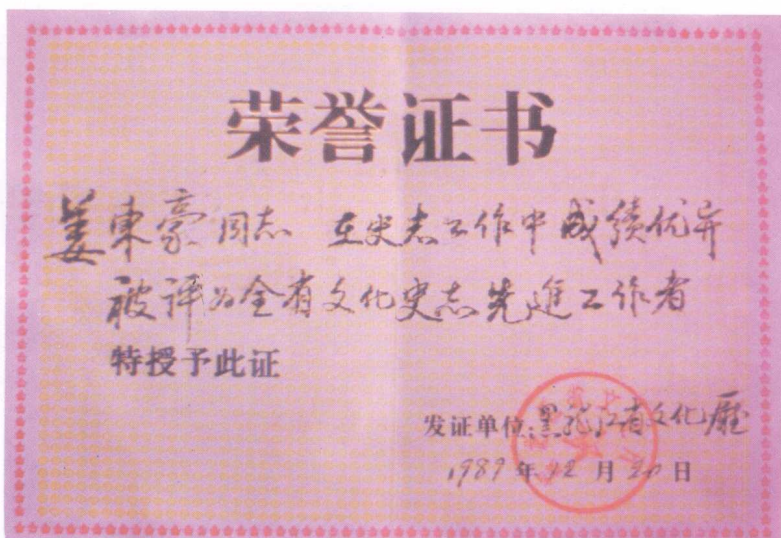 荣誉证书
姜東豪同志 在史志工作中成绩优异
被评为全省文化史志先進工作者
特授予此证
发证单位:黑龙江省文化廳
1989年12月20日